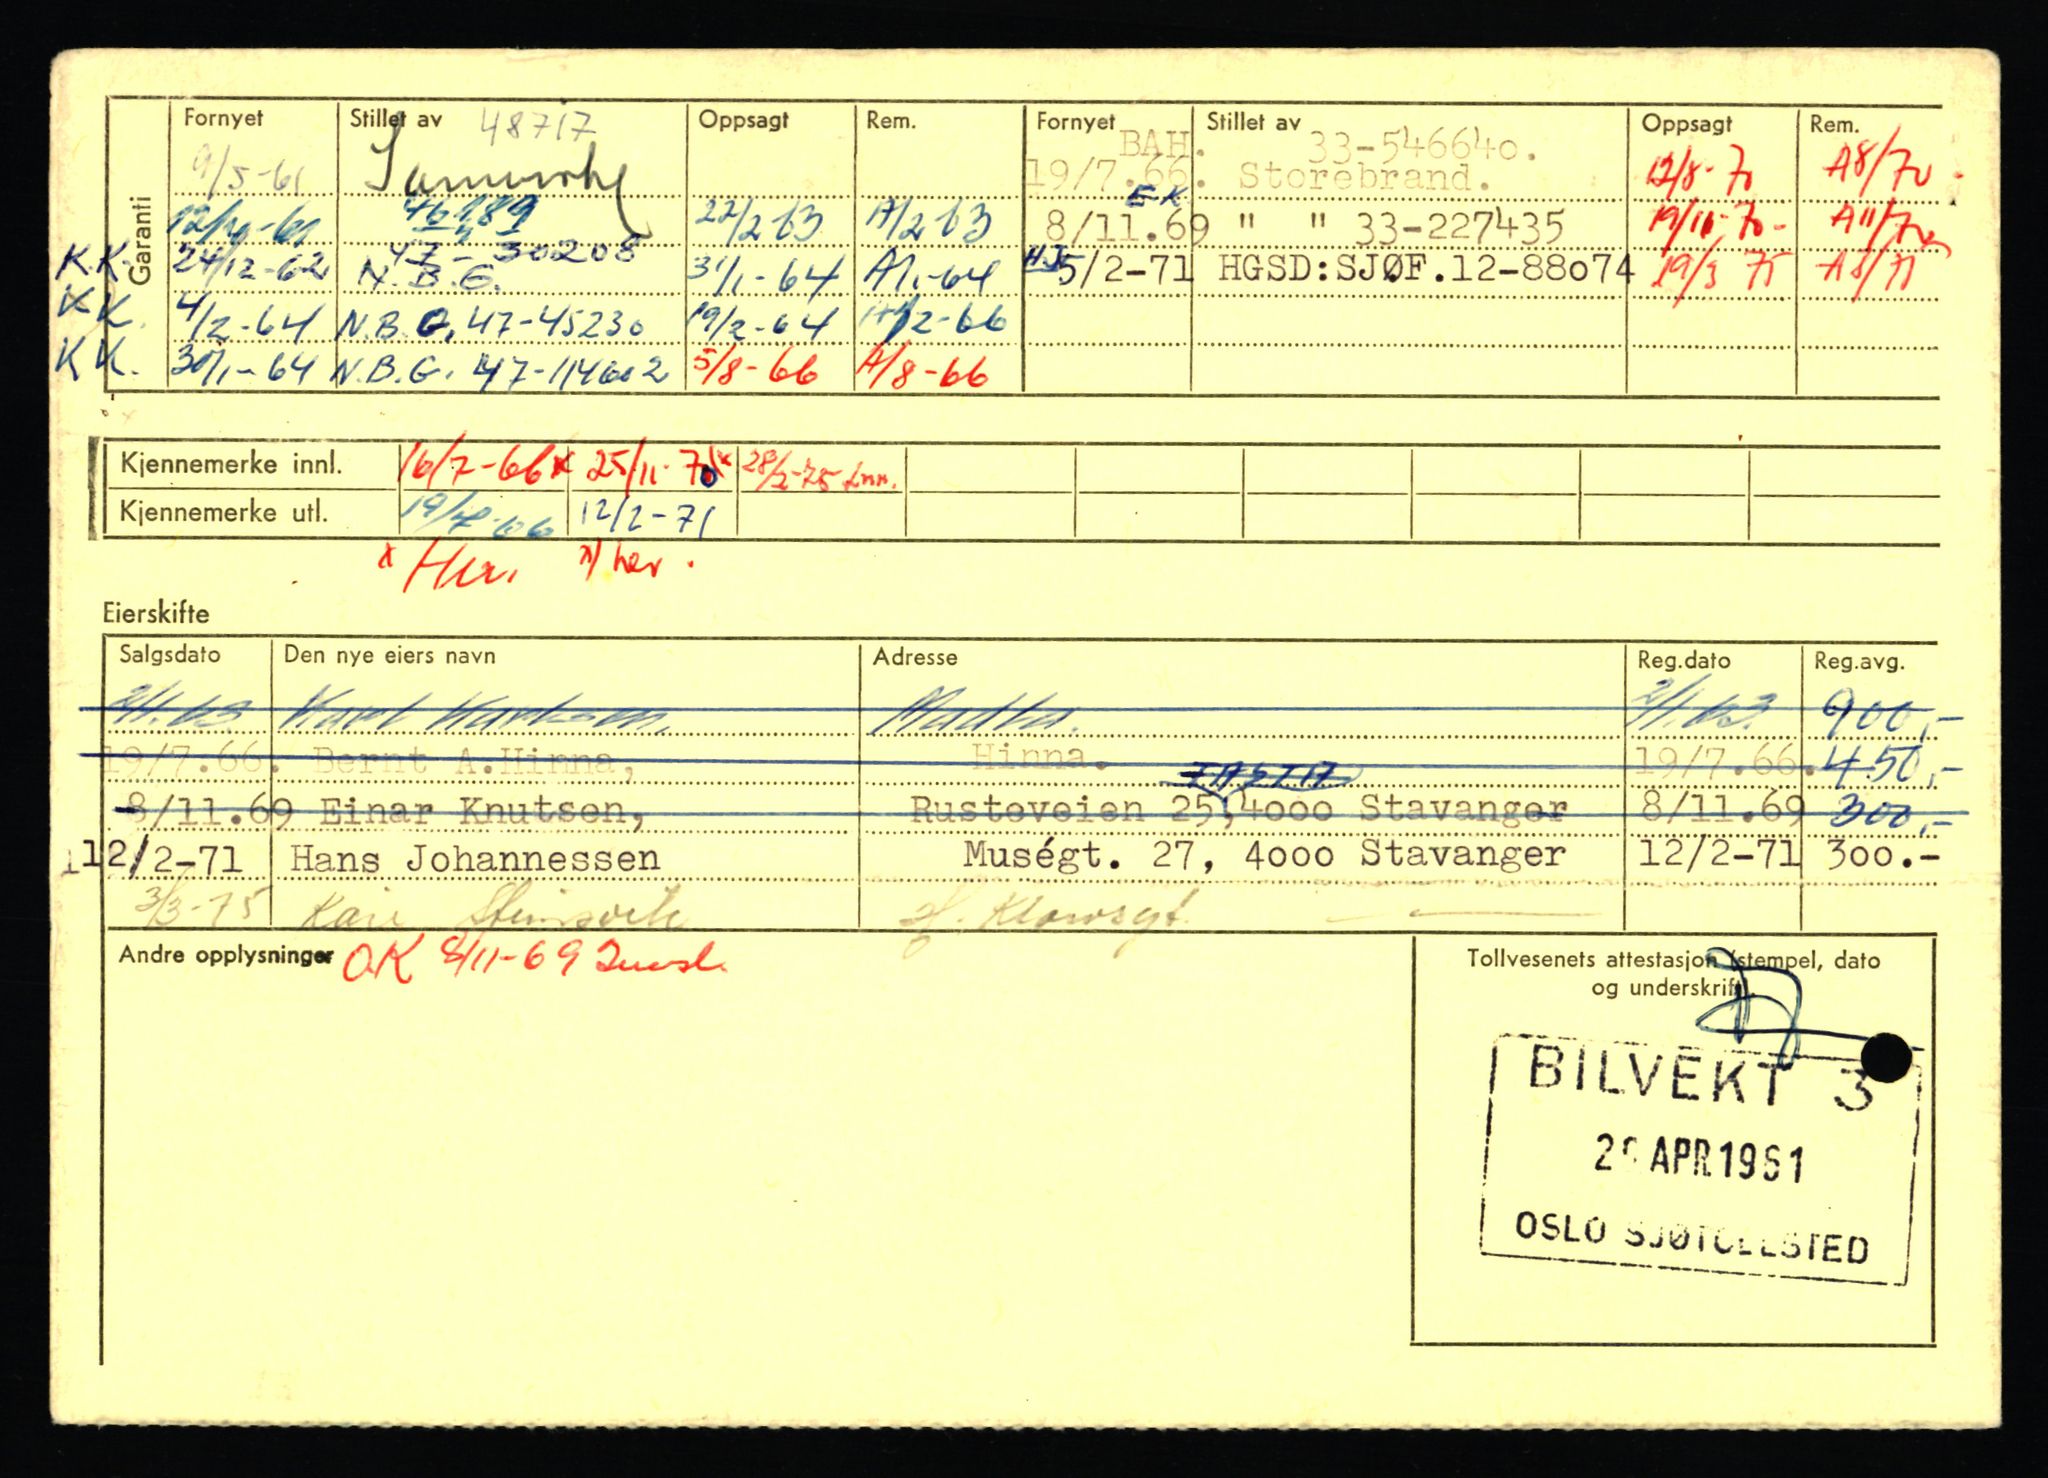 Garanti
Fornyet Stillet av 48717 Oppsagt Rem. Fornyet Stillet av Oppsagt Rem.
9/5-61 BAH. 33-546640.
19/7.66. Storebrand. 12/8-70 A8/70
46189 22/2 63 A/2 63 EK
8/11.69 " " 33-227435 19/11-70- A11/70
K.K. 24/12-62 47-30208
N.B.G. 31/1-64 A/1-64 HJ 5/2-71 HGSD:SJØF.12-88074 19/3 75
KK. 4/2-64 N.B.G. 47-45230 19/2-64
KK. 30/1-64 N.B.G. 47-114602 5/8-66 A/8-66
Kjennemerke innl. 16/7-66x 25/11-70x 28/2-75
Kjennemerke utl. 12/2-71
x Her. x/ her.
Eierskifte
Salgsdato Den nye eiers navn Adresse Reg.dato Reg.avg.
2/1.63 Karl Karlsen, Madla. 2/1.63. 900,-
19/7.66. Bernt A.Hinna, Hinna. 19/7.66. 450,-
8/11.69 Einar Knutsen, Rusteveien 25, TASTA 4000 Stavanger 8/11.69 300,-
12/2-71 Hans Johannessen Muségt. 27, 4000 Stavanger 12/2-71 300.-
3/3-75 Kari
Andre opplysninger OK 8/11-69
Tollvesenets attestasjon (stempel, dato
og underskrift).
BILVEKT 3
APR 1961
OSLO SJØTOLLSTED